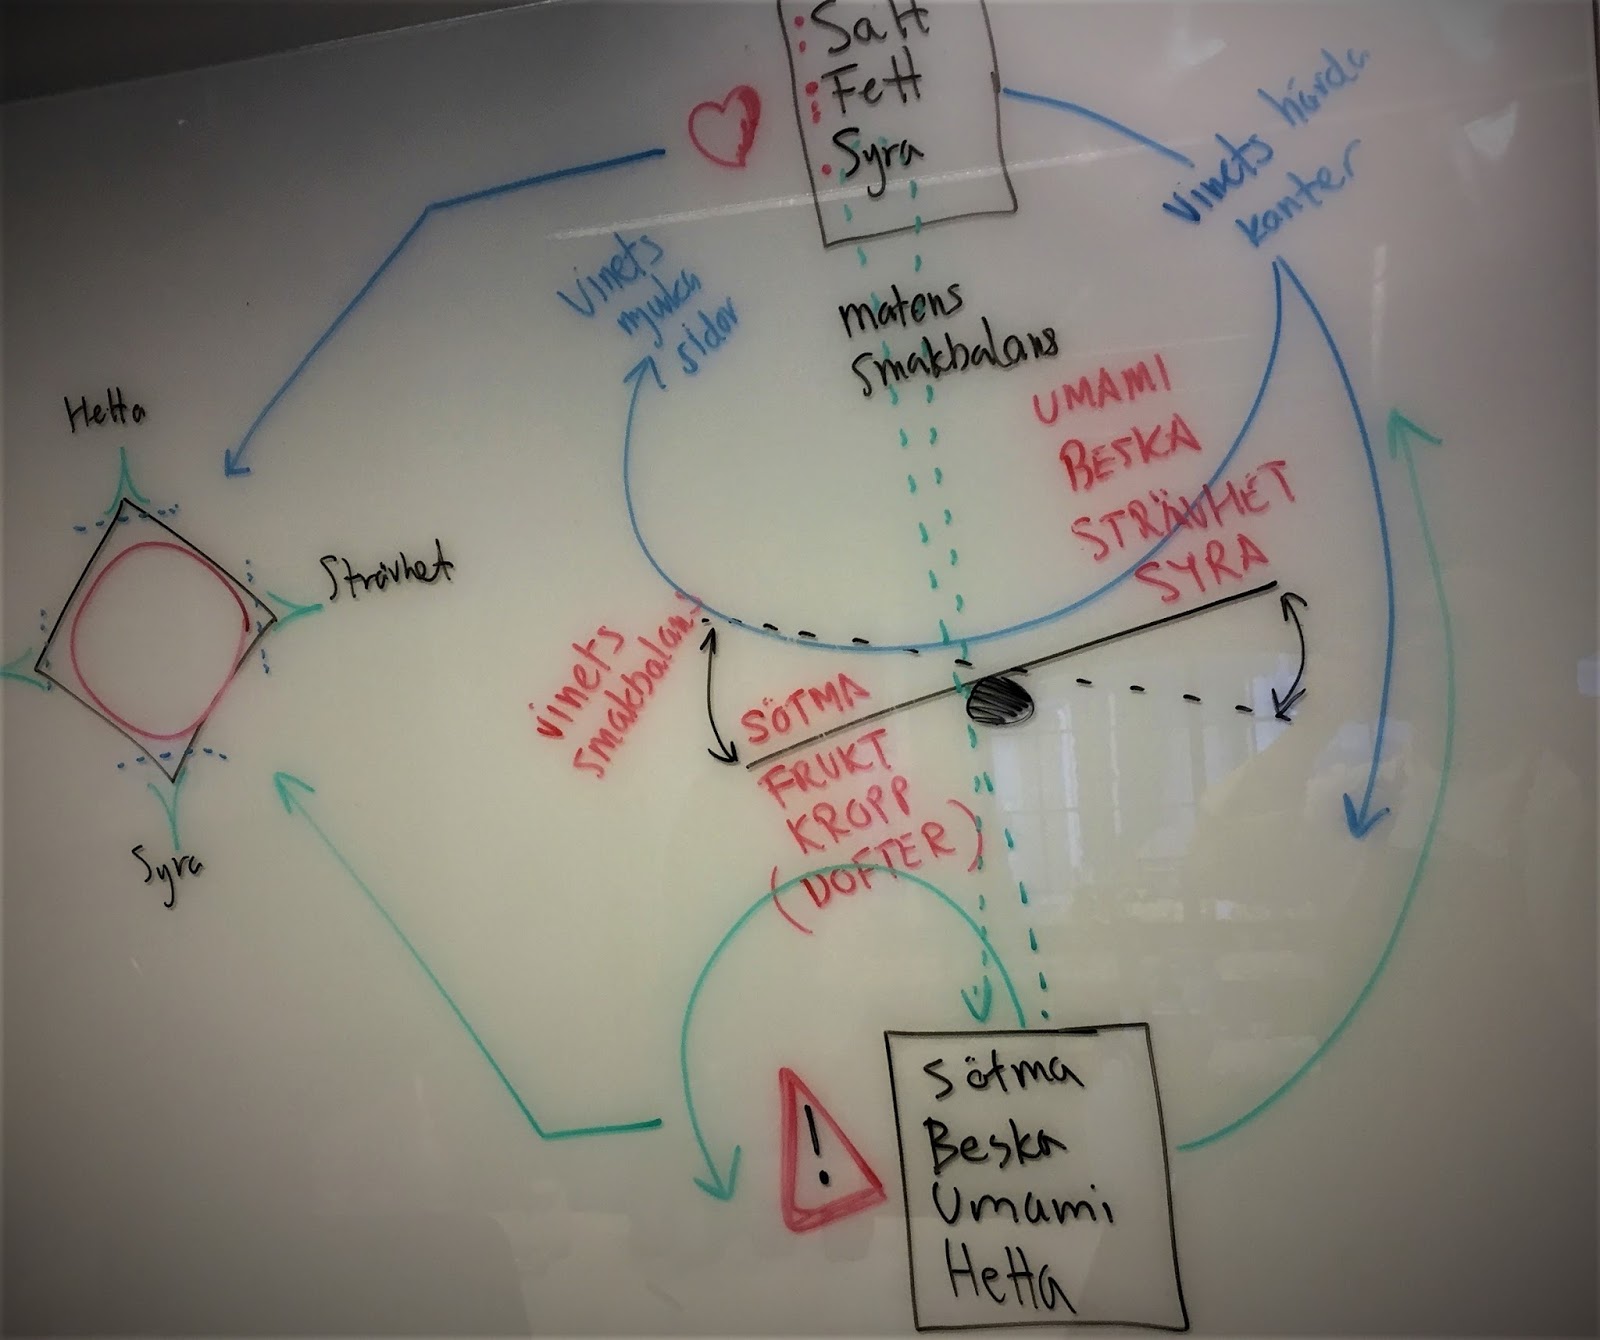 Salt
Fett
Syra
vinets hårda
kanter
vinets
mjuka
sidor
matens
smakbalans
UMAMI
BESKA
STRÄVHET
SYRA
Hetta
Strävhet
Syra
vinets
smakbalans
SÖTMA
FRUKT
KROPP
(DOFTER)
!
Sötma
Beska
Umami
Hetta